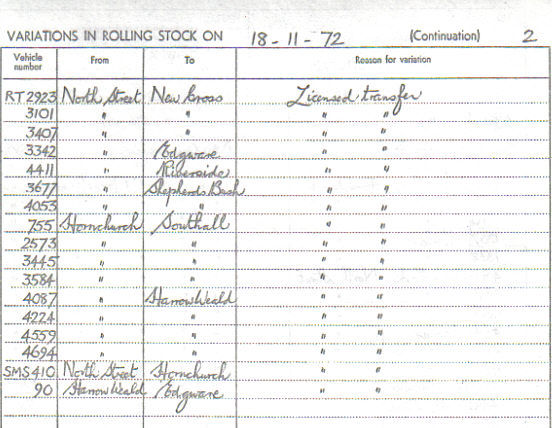 VARIATIONS IN ROLLING STOCK ON 18-11-72 (Continuation) 2
Vehicle number From To Reason for variation
RT 2923 North Street New Cross Licensed transfer
3101 " " " "
3407 " " " "
3342 " Edgware " "
4411 " Riverside " "
3677 " Shepherds Bush " "
4053 " " " "
755 Hornchurch Southall " "
2573 " " " "
3445 " " " "
3584 " " " "
4087 " Harrow Weald " "
4224 " " " "
4559 " " " "
4694 " " " "
SMS 410 North Street Hornchurch " "
90 Harrow Weald Edgware " "